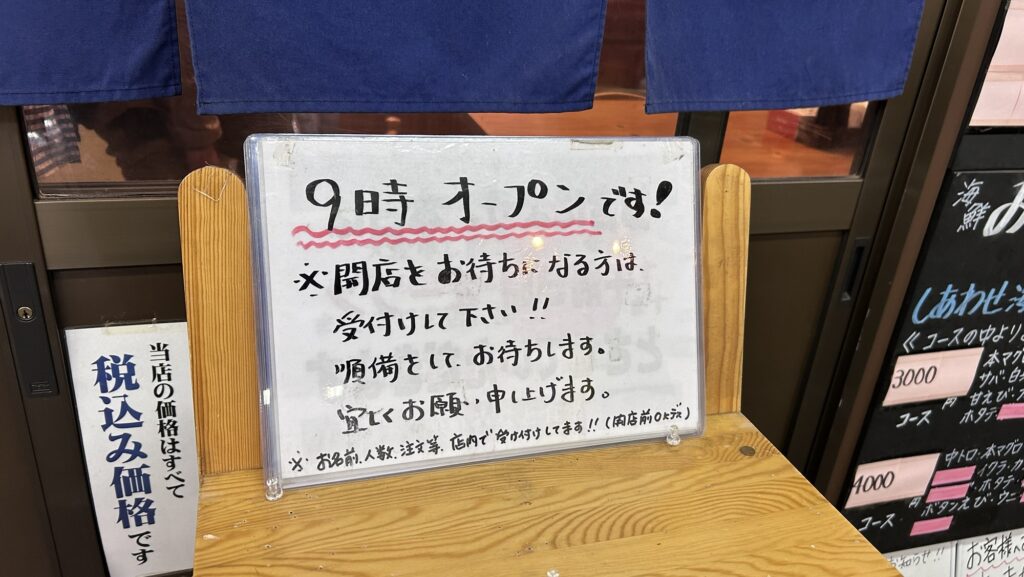 9時 オープンです!
※開店をお待ちになる方は、
受付けして下さい!!
順備をして、お待ちします。
宜しくお願い申し上げます。
※お名前、人数、注文等、店内で受け付けしてます!!(開店前OKデス)
当店の価格はすべて
税込み価格です
海鮮
しあわせ
くコースの中より
3000
円
コース
本マグロ
サバ・白
甘えび・
ホタテ
4000
円
コース
中トロ・本マグロ
イクラ・
ホタテ
ボタンえび・ウニ
お知らせ!!
お客様へ